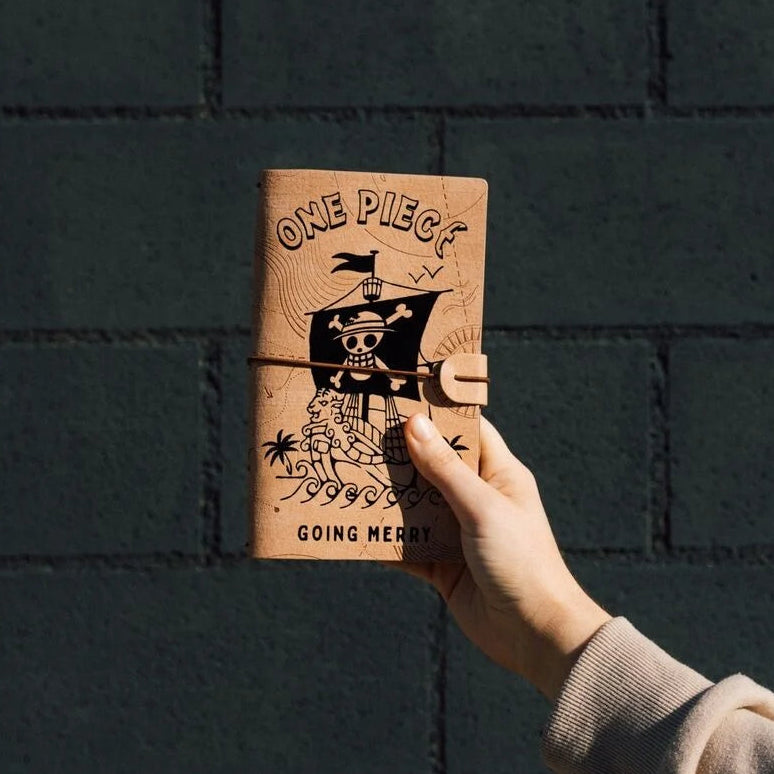 ONE PIECE
GOING MERRY